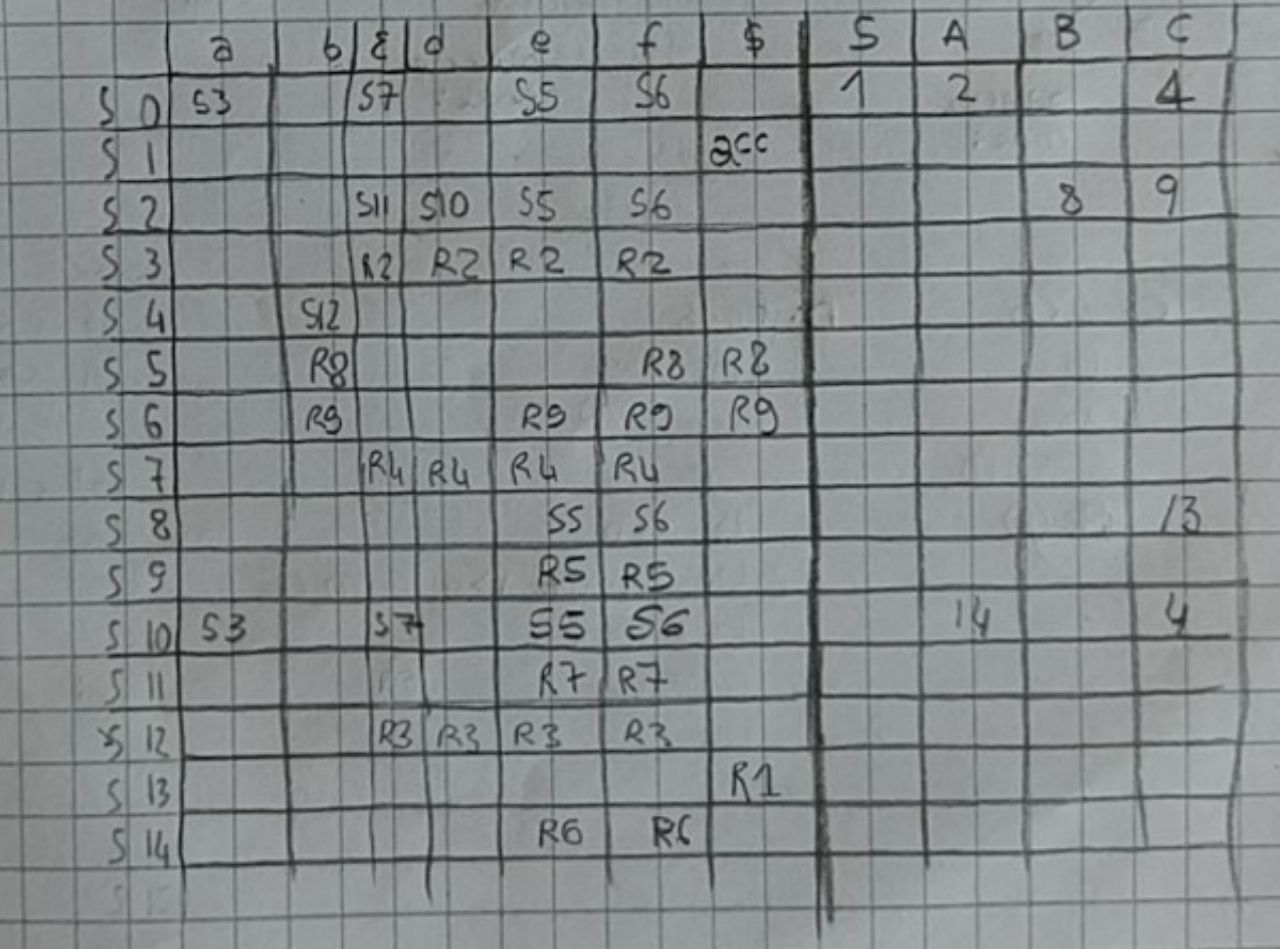 a b ε d e f $ S A B C
S 0 S3 S7 S5 S6 1 2 4
S 1 acc
S 2 S11 S10 S5 S6 8 9
S 3 R2 R2 R2 R2
S 4 S12
S 5 R8 R8 R8
S 6 R9 R9 R9 R9
S 7 R4 R4 R4 R4
S 8 S5 S6 13
S 9 R5 R5
S 10 S3 S7 S5 S6 14 4
S 11 R7 R7
S 12 R3 R3 R3 R3
S 13 R1
S 14 R6 R6